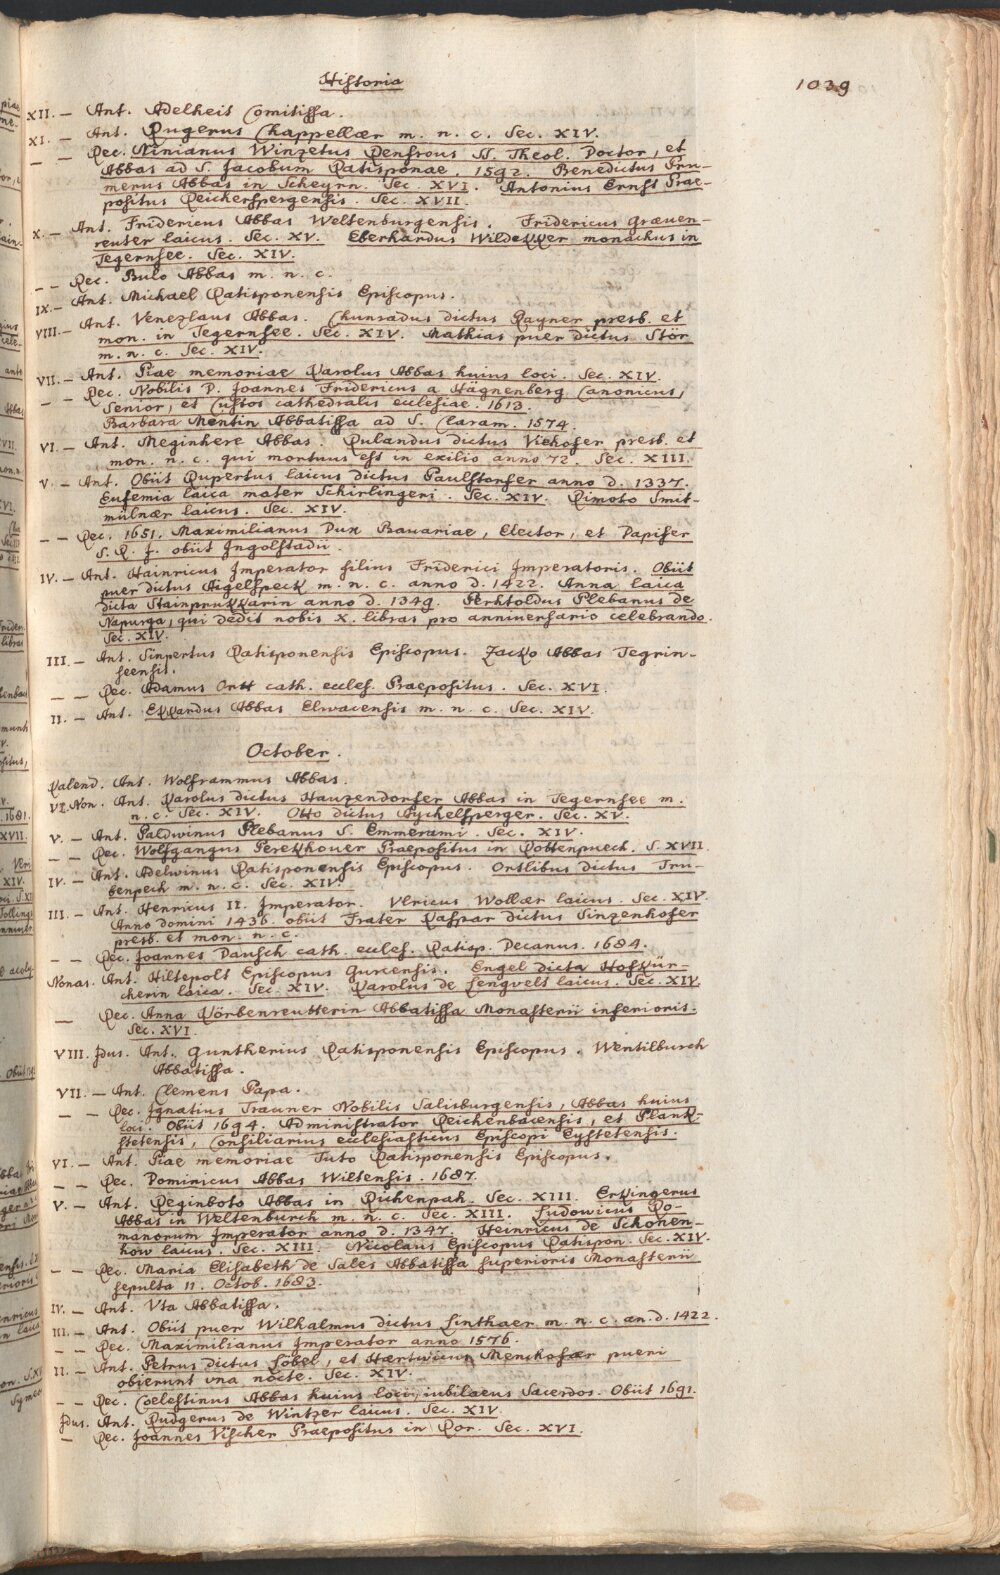 Historia
1039
XII. – Ant. Adelheit Comitissa.
XI. – Ant. Rugerus Chappellær m. n. c. Sec. XIV.
– – Rec. Ninianus Winzetus Renfrous SS. Theol. Doctor, et
Abbas ad S. Jacobum Ratisponae. 1592. Benedictus Pru-
merus Abbas in Scheyrn. Sec. XVI. Antonius Ernst Prae-
positus Reicherspergensis. Sec. XVII.
X. – Ant. Fridericus Abbas Weltenburgensis. Fridericus Græuen-
reuter laicus. Sec. XV. Eberhardus Wildekker monachus in
Tegernsee. Sec. XIV.
– – Rec. Bulo Abbas m. n. c.
IX. – Ant. Michael Ratisponensis Episcopus.
VIII. – Ant. Venezlaus Abbas. Chunradus dictus Rayner presb. et
mon. in Tegernsee. Sec. XIV. Mathias puer dictus Stör
m. n. c. Sec. XIV.
VII. – Ant. Piae memoriae Karolus Abbas huius loci. Sec. XIV.
– – Rec. Nobilis D. Joannes Fridericus a Hägnenberg Canonicus,
Senior, et Custos cathedralis ecclesiae. 1613.
Barbara Mentin Abbatissa ad S. Claram. 1574.
VI. – Ant. Meginhere Abbas. Rulandus dictus Viehofer presb. et
mon. n. c. qui mortuus est in exilio anno 72. Sec. XIII.
V. – Ant. Obiit Rupertus laicus dictus Paulstorfer anno d. 1337.
Eufemia laica mater Schirlingeri. Sec. XIV. Rimoto Smit-
mülnær laicus. Sec. XIV.
– – Rec. 1651. Maximilianus Dux Bauariae, Elector, et Dapifer
S. R. J. obiit Jngolstadii.
IV. – Ant. Hainricus Jmperator filius Friderici Jmperatoris. Obiit
puer dictus Aigelspeck m. n. c. anno d. 1422. Anna laica
dicta Stainprukkarin anno d. 1349. Perhtoldus Plebanus de
Napurga, qui dedit nobis X. libras pro anniuersario celebrando.
Sec. XIV.
III. – Ant. Sinpertus Ratisponensis Episcopus. Zacko Abbas Tegrin-
seensis.
– – Rec. Adamus Ortt cath. eccles. Praepositus. Sec. XVI.
II. – Ant. Ekkardus Abbas Elwacensis m. n. c. Sec. XIV.
October.
Kalend. Ant. Wolframmus Abbas.
VI. Non. Ant. Karolus dictus Hauzendorfer Abbas in Tegernsee m.
n. c. Sec. XIV. Otto dictus Aychelsperger. Sec. XV.
V. – Ant. Paldwinus Plebanus S. Emmerami. Sec. XIV.
– – Rec. Wolfgangus Perekhouer Praepositus in Rottenpuech. S. XVII.
IV. – Ant. Adelwinus Ratisponensis Episcopus. Ortlibus dictus Tru-
benpech m. n. c. Sec. XIV.
III. – Ant. Henricus II. Jmperator. Vlricus Wollær laicus. Sec. XIV.
Anno domini 1436 obiit Frater Kaspar dictus Sinzenhofer
presb. et mon. n. c.
– – Rec. Joannes Dausch cath. eccles. Ratisp. Decanus. 1684.
Nonas. Ant. Hiltepolt Episcopus Gurcensis. Engel dicta Hofkür-
cherin laica. Sec. XIV. Karolus de Lengvelt laicus. Sec. XIV.
– Rec. Anna Körbenreutterin Abbatissa Monasterii inferioris.
Sec. XVI.
VIII. Jdus. Ant. Guntherius Ratisponensis Episcopus. Wentilburch
Abbatissa.
VII. – Ant. Clemens Papa.
– – Rec. Jgnatius Trauner Nobilis Salisburgensis, Abbas huius
loci. Obiit 1694. Administrator Reichenbacensis, et Plank-
stetensis, Consiliarius ecclesiasticus Episcopi Eystetensis.
VI. – Ant. Piae memoriae Tuto Ratisponensis Episcopus.
– – Rec. Dominicus Abbas Wiltensis. 1687.
V. – Ant. Reginboto Abbas in Richenpah. Sec. XIII. Erkingerus
Abbas in Weltenburch m. n. c. Sec. XIII. Ludowicus Ro-
manorum Jmperator anno d. 1347. Heinricus de Schonen-
how laicus. Sec. XIII. Nicolaus Episcopus Ratispon. Sec. XIV.
– – Rec. Maria Elisabeth de Sales Abbatissa superioris Monasterii
sepulta 11. Octob. 1683.
IV. – Ant. Vta Abbatissa.
III. – Ant. Obiit puer Wilhalmus dictus Linthaer m. n. c. an. d. 1422.
– – Rec. Maximilianus Jmperator anno 1576.
II. – Ant. Petrus dictus Löbel, et Hærtwicus Menchofær pueri
obierunt vna nocte. Sec. XIV.
– – Rec. Coelestinus Abbas huius loci, iubilaeus Sacerdos. Obiit 1691.
Jdus. Ant. Rudgerus de Wintzer laicus. Sec. XIV.
– Rec. Joannes Vischer Praepositus in Ror. Sec. XVI.